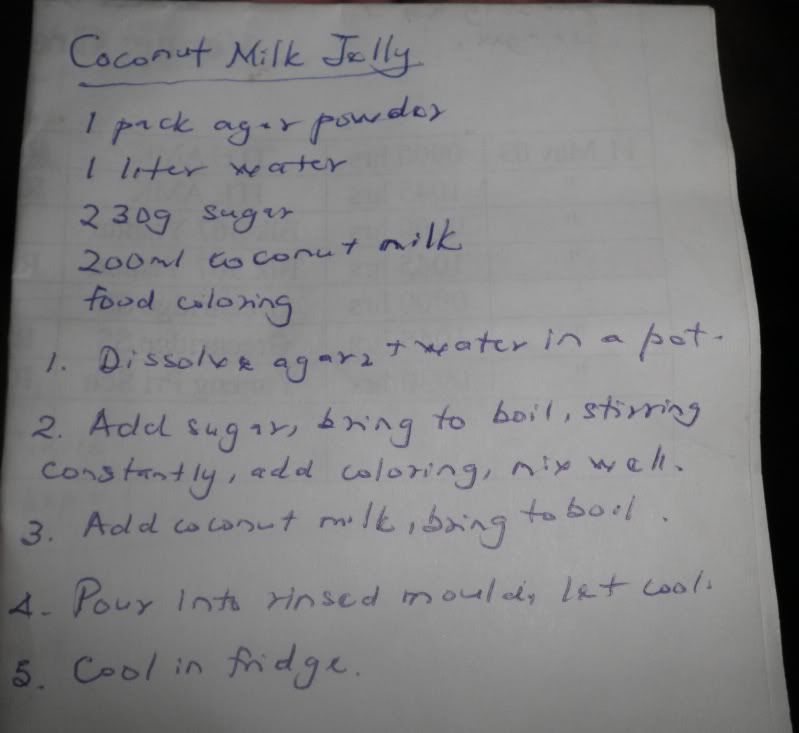 Coconut Milk Jelly
1 pack agar powder
1 liter water
230g sugar
200ml coconut milk
food coloring
1. Dissolve agar + water in a pot.
2. Add sugar, bring to boil, stirring
constantly, add coloring, mix well.
3. Add coconut milk, bring to boil.
4. Pour into rinsed mould, let cool.
5. Cool in fridge.